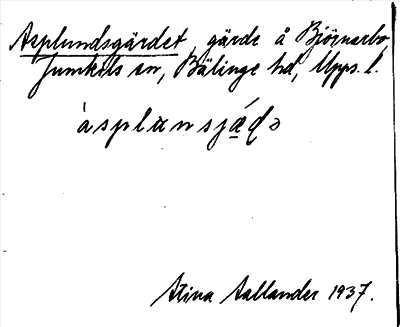 Asplundsgärdet, gärde å Björnarbo,
Jumkils sn, Bälinge hd, Upps. l.
àsplɯnsjǽḍə
Stina Aallander 1937.